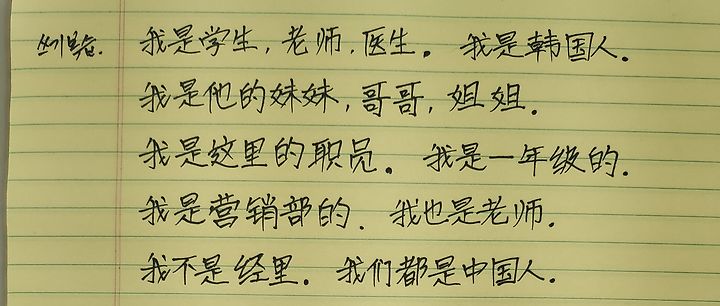 我是学生,老师,医生。 我是韩国人.
我是他的妹妹,哥哥,姐姐.
我是这里的职员。 我是一年级的.
我是营销部的. 我也是老师.
我不是经里. 我们都是中国人.